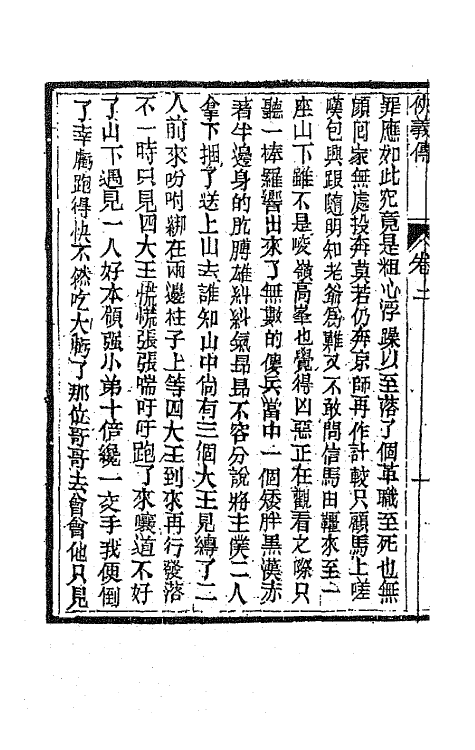 俠義傳
卷二
罪應如此究竟是粗心浮躁以至落了個革職至死也無
顔回家無處投奔莫若仍奔京師再作計較只顧馬上嗟
嘆包興跟隨明知老爺爲難又不敢問信馬由韁來至一
座山下雖不是峻嶺高峯也覺得凶惡正在觀看之際只
聽一棒鑼響出來了無數的僂兵當中一個矮胖黑漢赤
著半邊身的肐膊雄糾糾氣昂昂不容分說將主僕二人
拿下捆了送上山去誰知山中尙有三個大王見縛了二
人前來吩咐綁在兩邊柱子上等四大王到來再行發落
不一時只見四大王慌慌張張喘吁吁跑了來嚷道不好
了山下遇見一人好本領强小弟十倍纔一交手我便倒
了幸虧跑得快不然吃大虧了那位哥哥去會會他只見